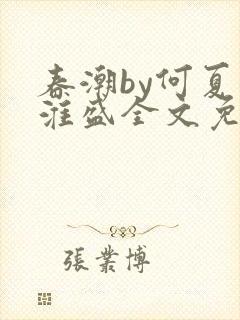 春潮by何夏
漄盛全文免
张業博